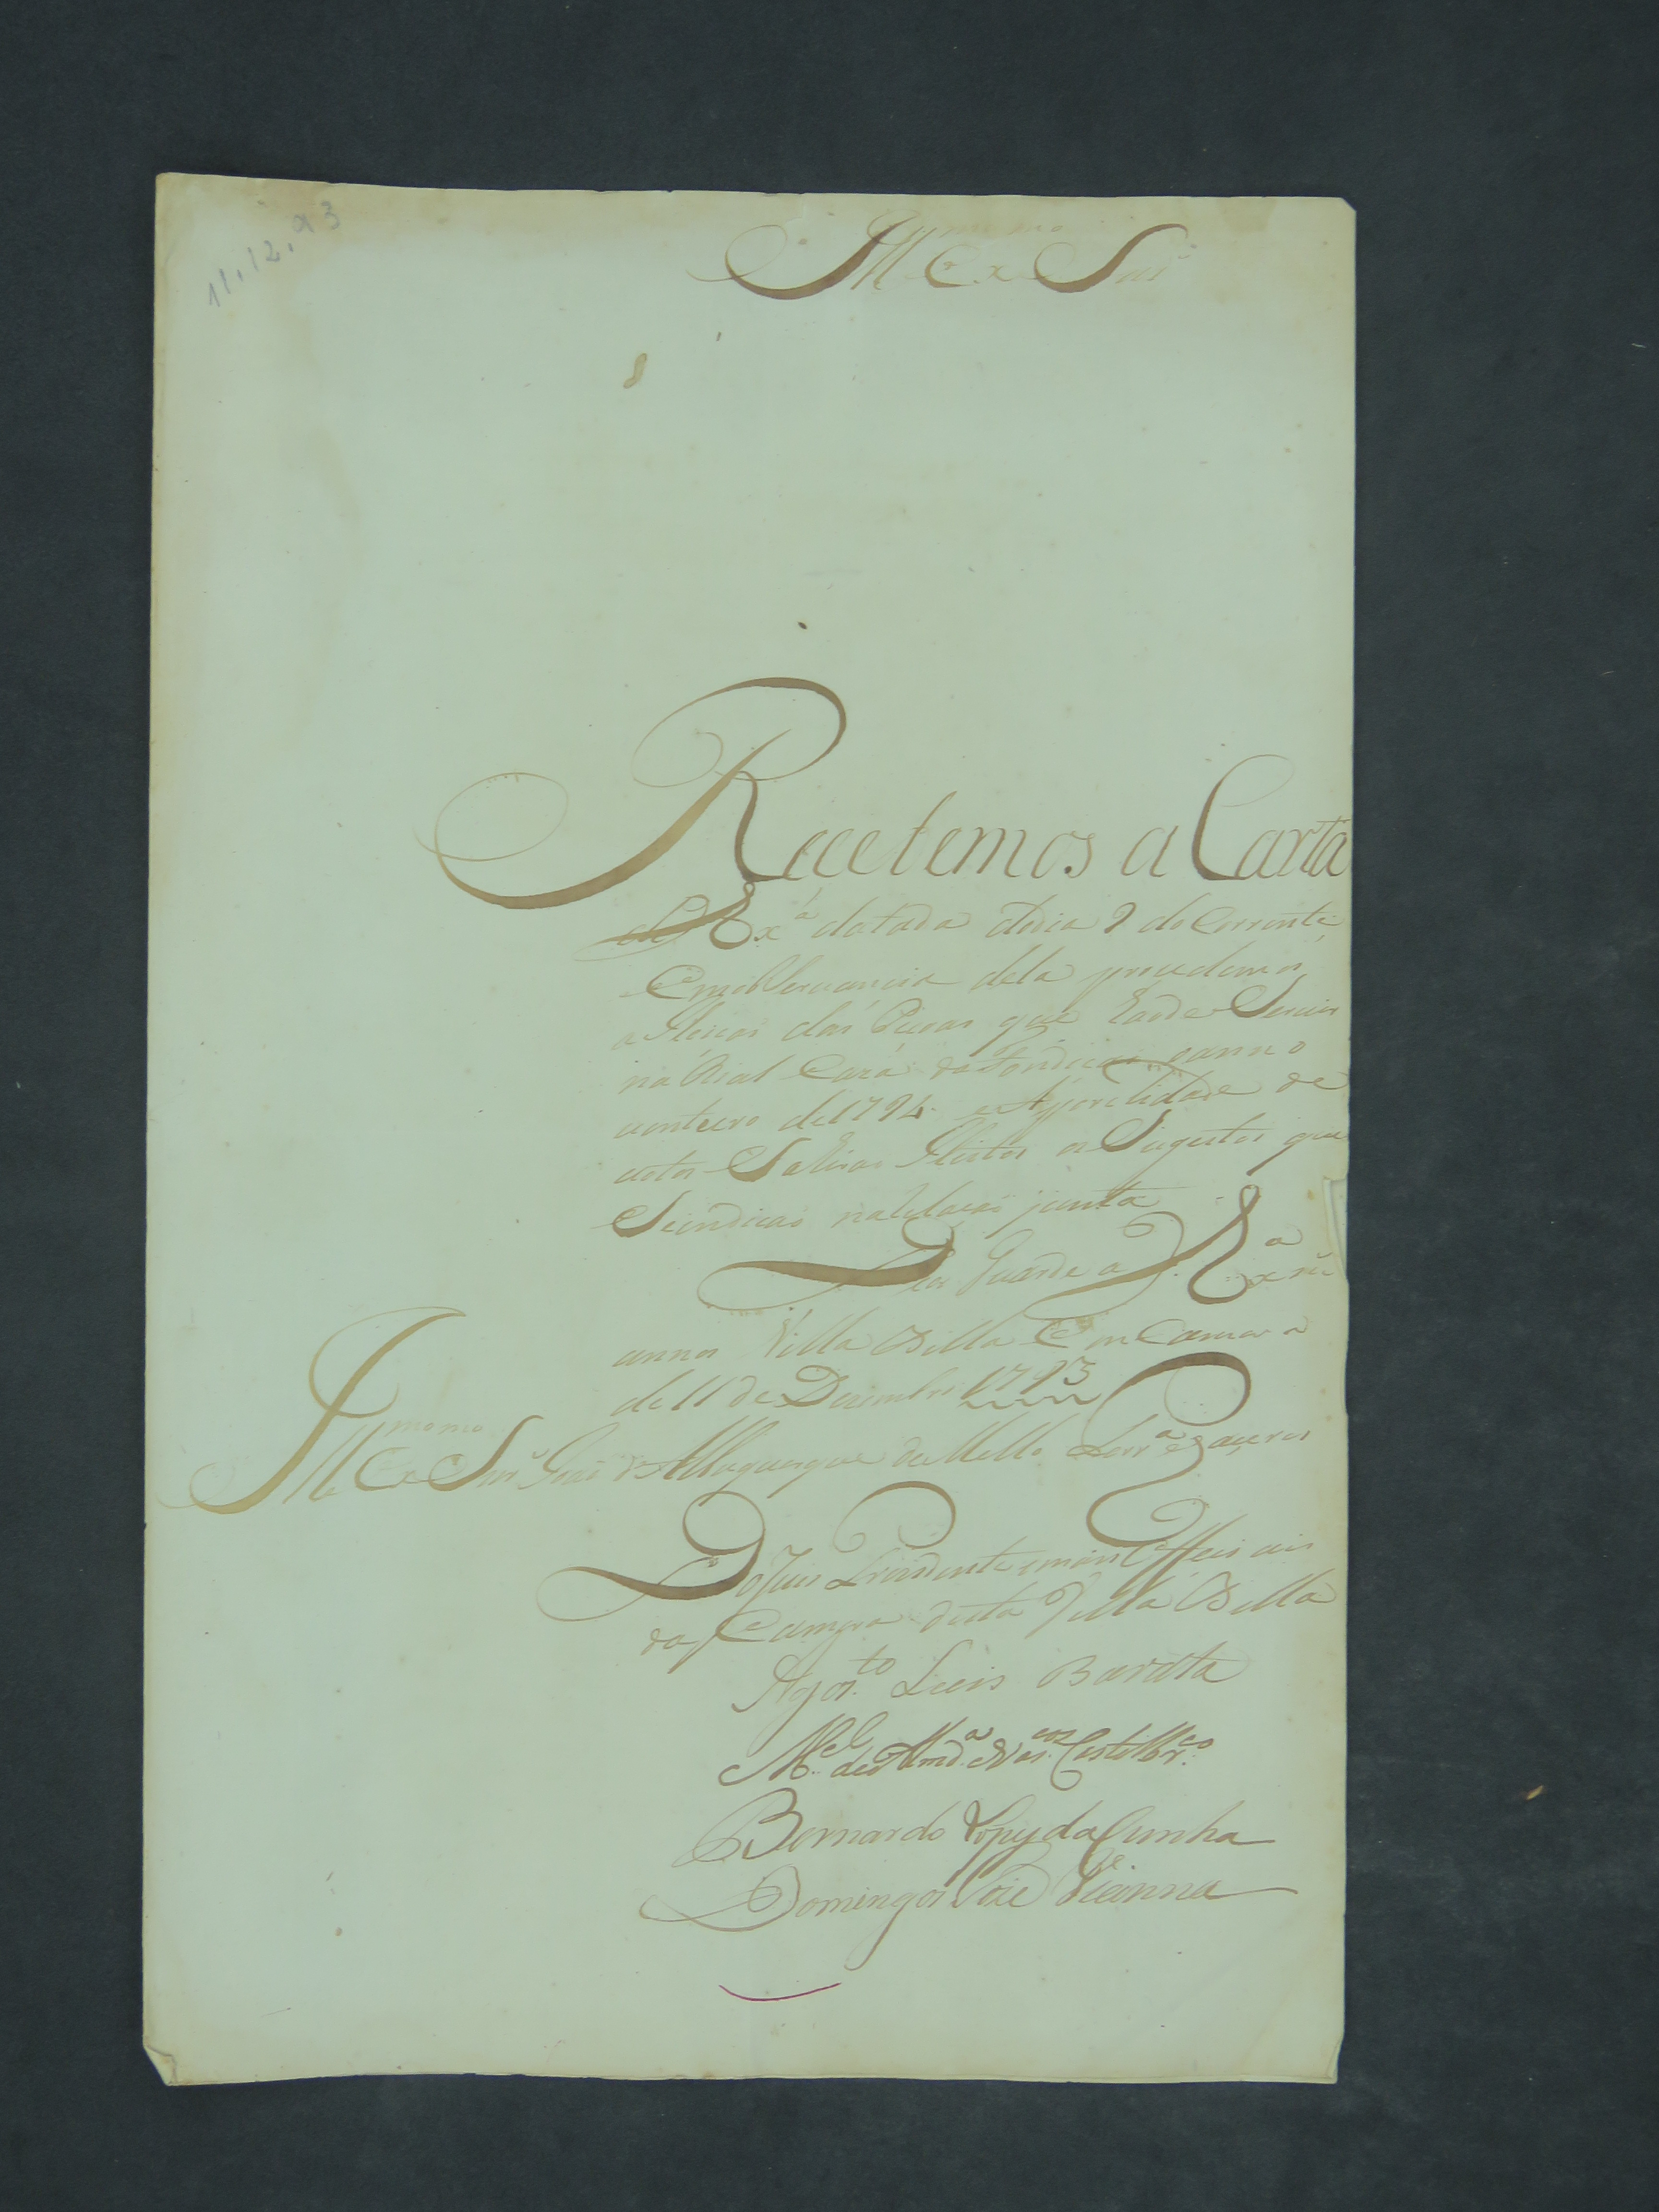 11.12.93
Ill.mo Ex.mo Snr.
Recebemos a Carta
de V. Ex.ª datada dodia 9 do Corrente,
Emobservancia dela procedemos
a Eleicaõ das Peçoas que haõde Servir
na Rial Caza da Fondicaõ oanno
vonteiro de 1794. e Aporelidade de
votos Sahiraõ Eleitos os Sugeitos que
Seindicaõ naRelaçaõ junta
Deos Guarde a V. Ex.ª m.s
annos Villa Bella Em Camara
de 11 de Dezembro 1793
Ill.mo Ex.mo Snr. Joaõ d'Albuquerque de Mello Per.ª e Caceres
DoJuis Prezidente emais Officiais
da Camera desta Villa Bella
Agos.to Luis Baratta
M.el de Almd.ª e Vas.cos Castelbr.co
Bernardo Lopes da Cunha
Domingos Joze Vianna